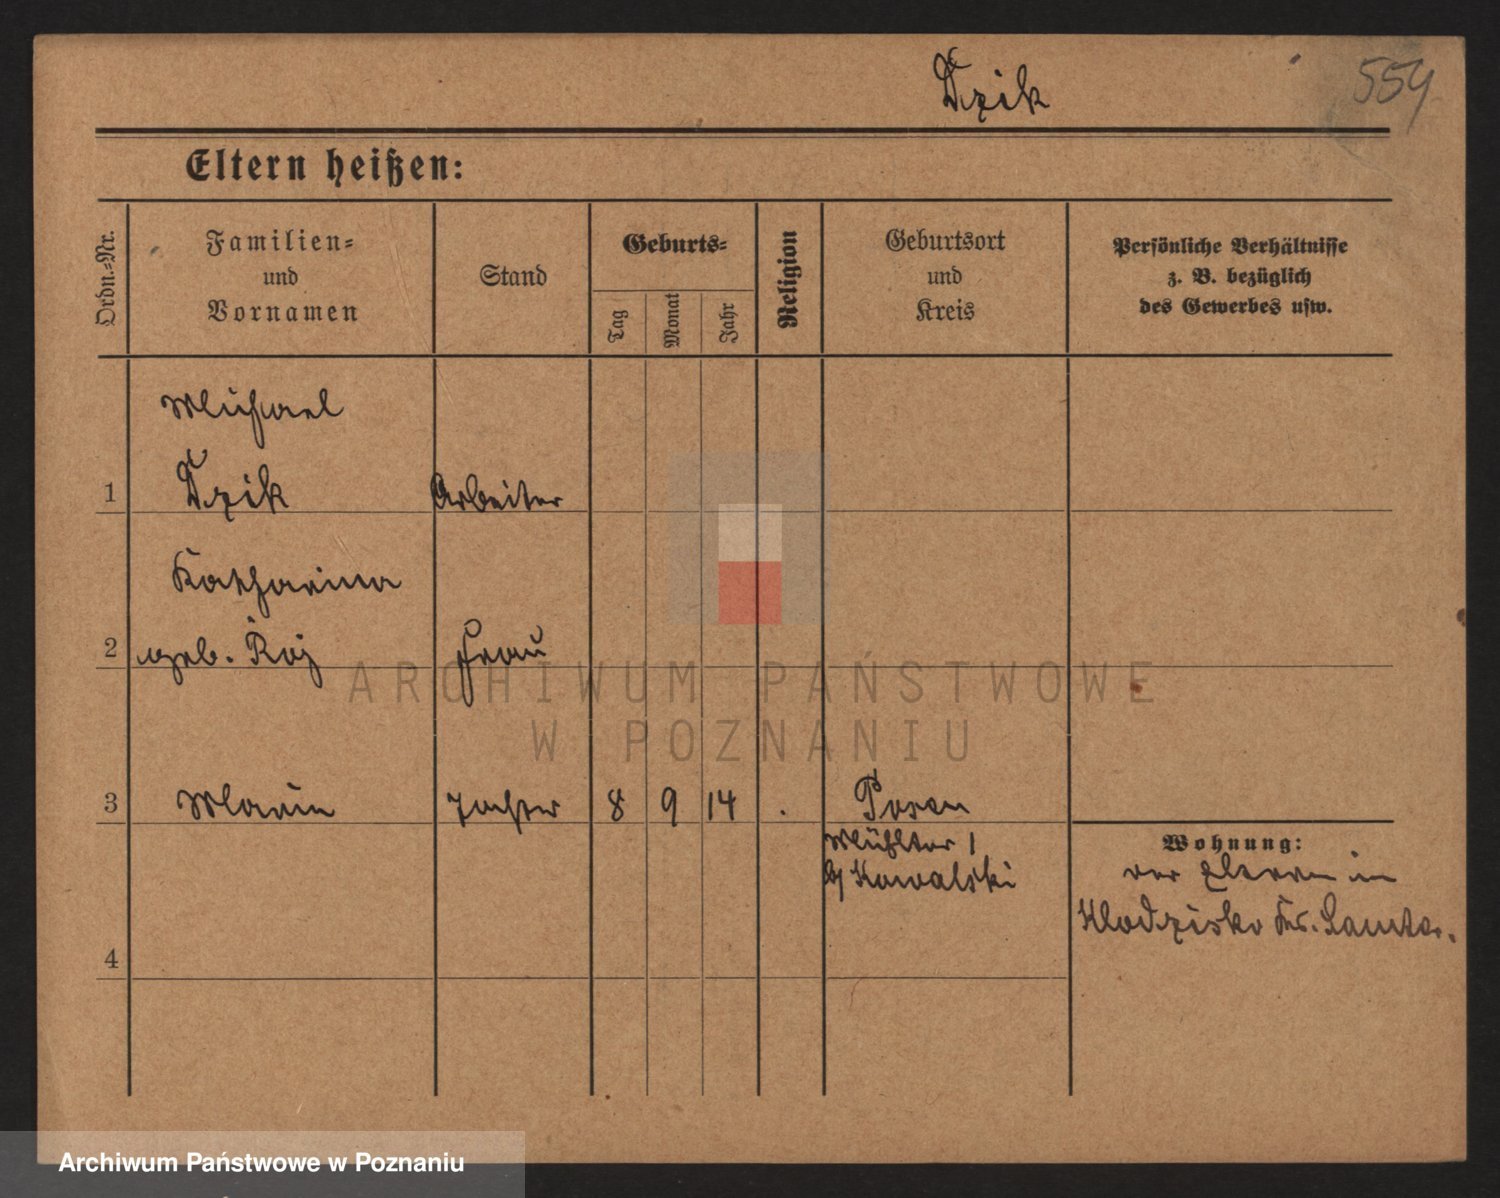 Dzik
554
Eltern heißen:
Ordn.=Nr.
Familien=
und
Vornamen
Stand
Geburts=
Tag
Monat
Jahr
Religion
Geburtsort
und
Kreis
Persönliche Verhältnisse
z. B. bezüglich
des Gewerbes usw.
Michael
1 Dzik Arbeiter
Katharina
2 geb. Roj Frau
3 Maria Tochter 8 9 14 . Posen
Mühltor 1
b/ Kowalski
Wohnung:
der Eltern in
Klodzisko Krs. Samter.
4
ARCHIWUM PAŃSTWOWE
W POZNANIU
Archiwum Państwowe w Poznaniu